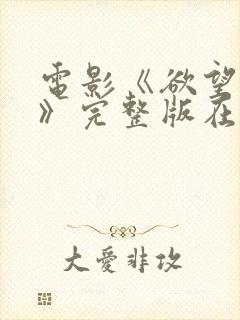 電影《欲望
》完整版在
大愛非攻